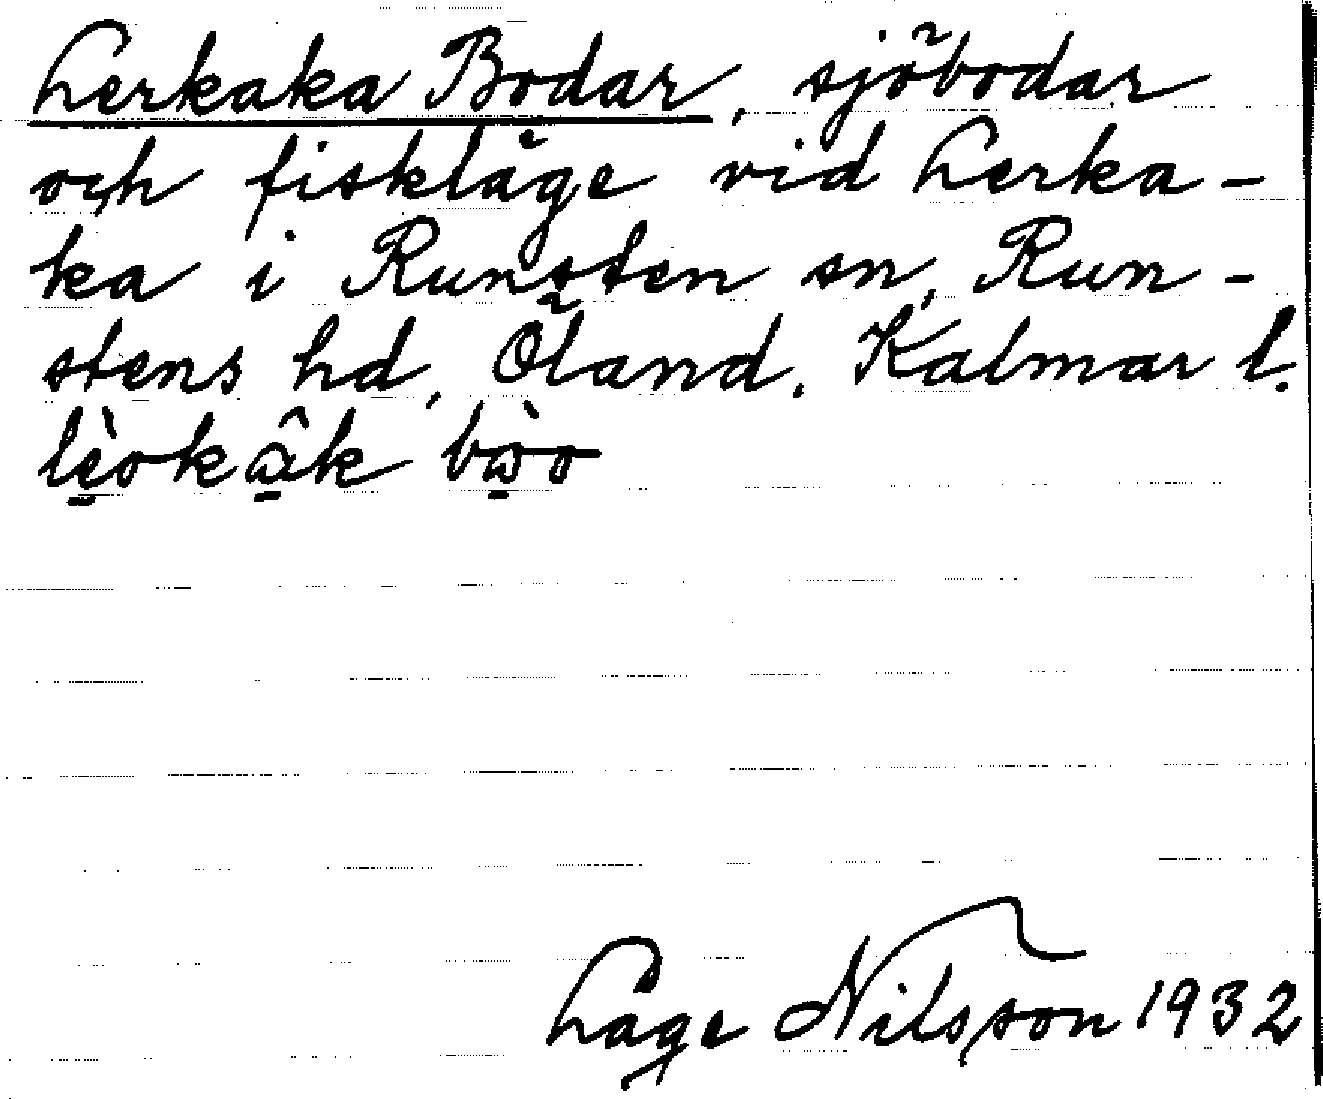 Lerkaka Bodar, sjöbodar
och fiskläge vid Lerka-
ka i Runsten sn, Run-
stens hd, Öland. Kalmar l.
Lage Nilsson 1932